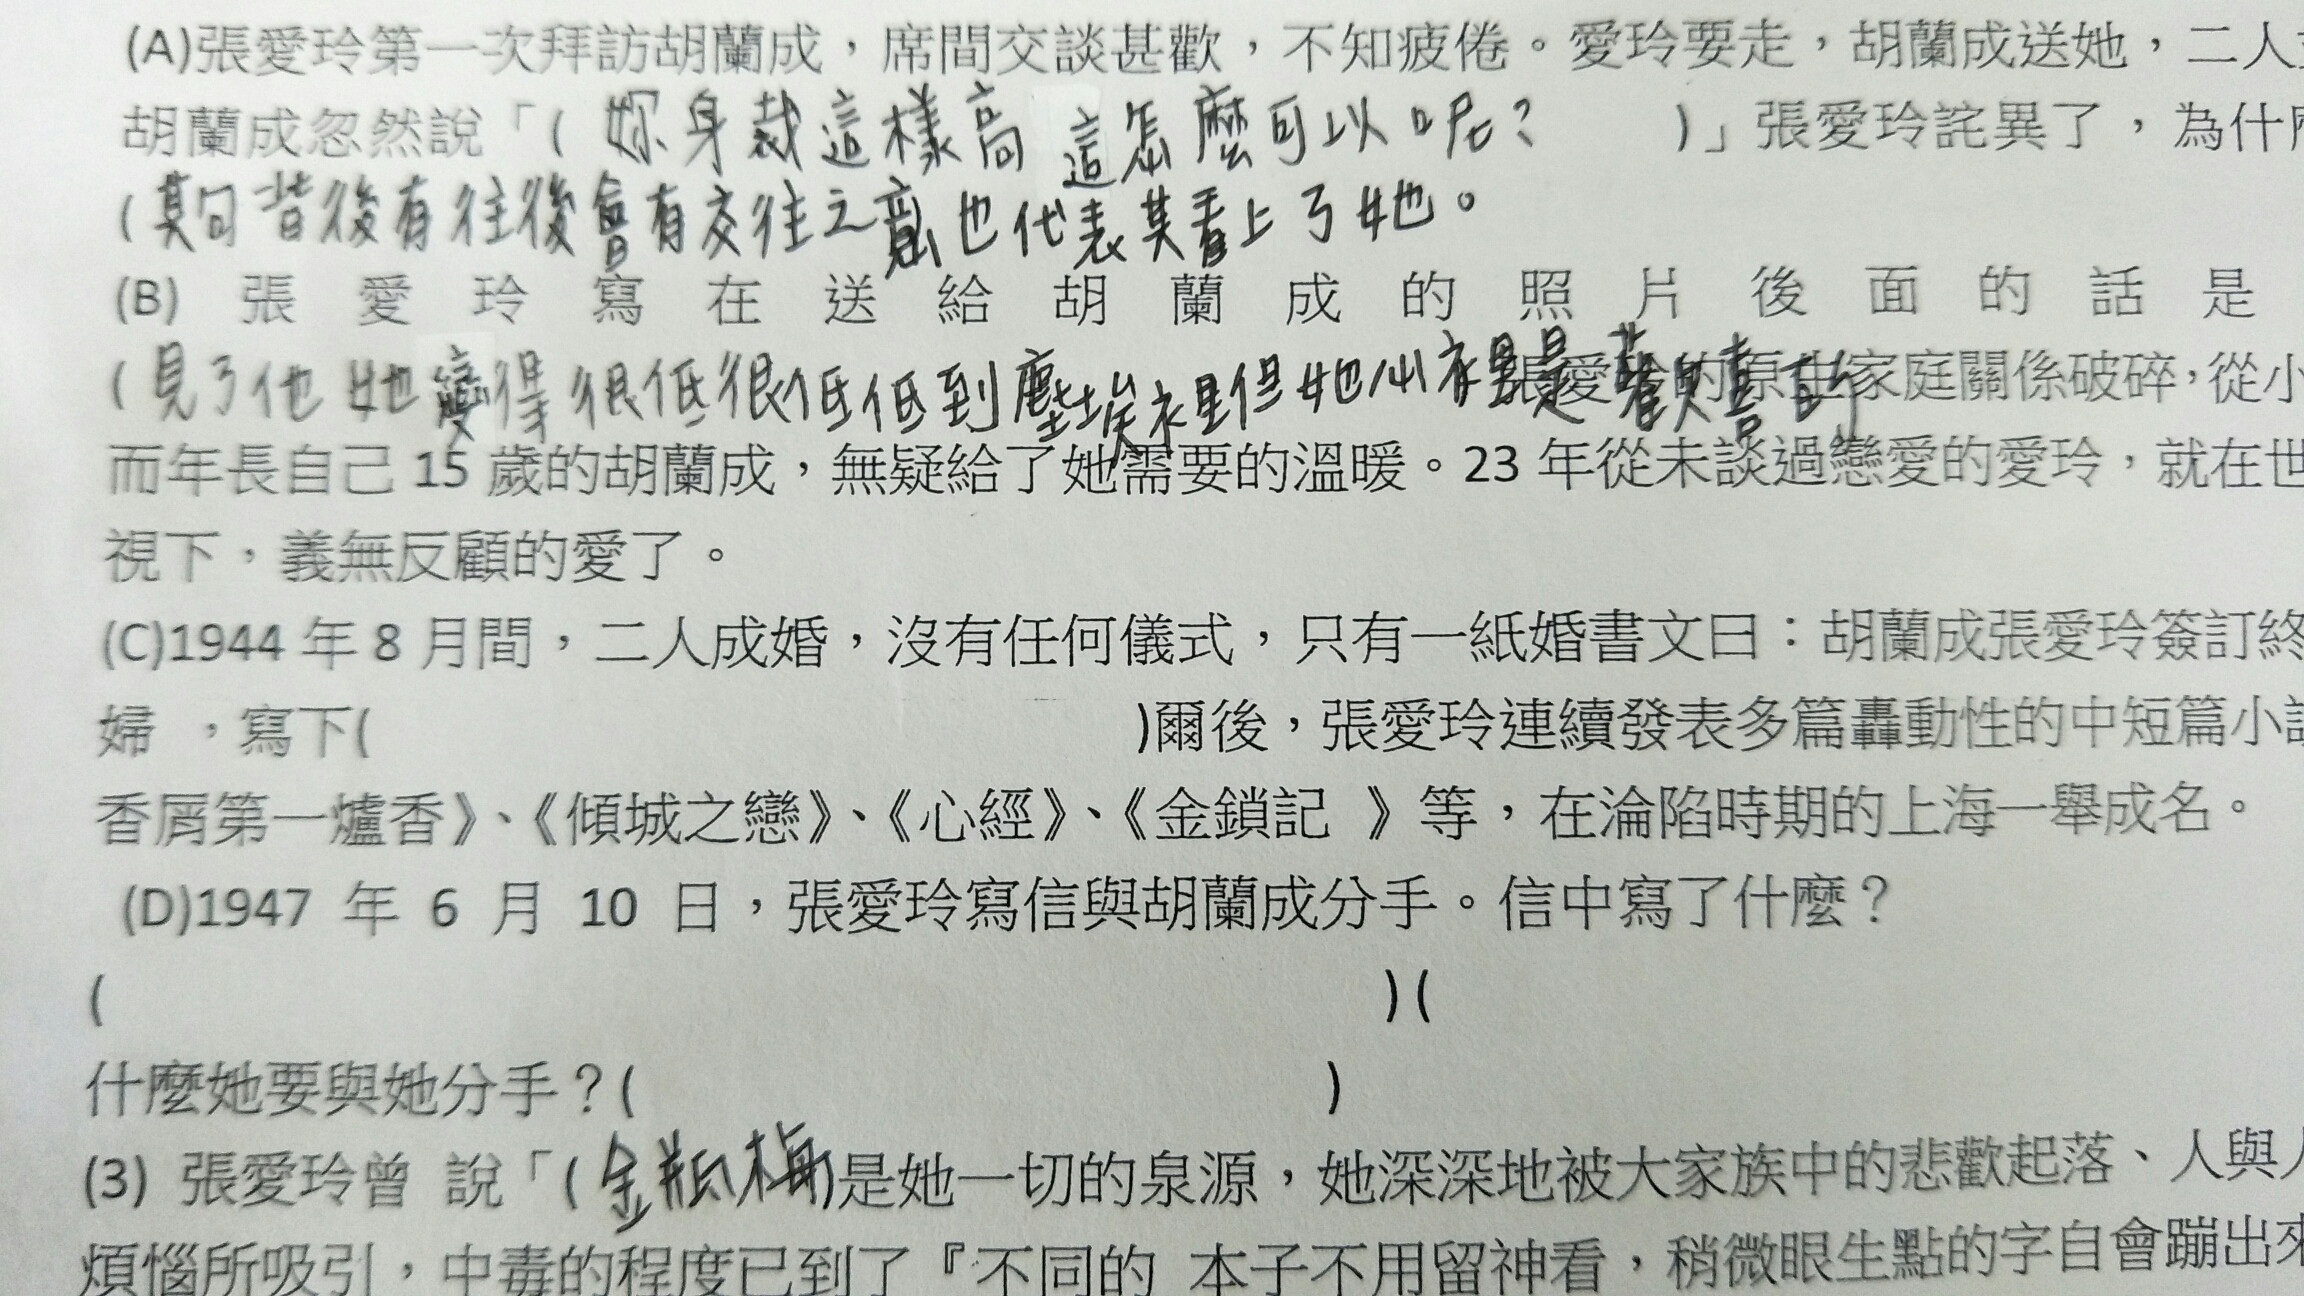 (A)張愛玲第一次拜訪胡蘭成，席間交談甚歡，不知疲倦。愛玲要走，胡蘭成送她，二人
胡蘭成忽然說「( 妳身裁這樣高 這怎麼可以呢？ )」張愛玲詫異了，為什
(其句背後有往後會有交往之意也代表其看上了她。
(B) 張愛玲寫在送給胡蘭成的照片後面的話是
(見了他她變得很低很低低到塵埃裡但她心裡是歡喜的 張愛玲的原生家庭關係破碎，從小
而年長自己 15 歲的胡蘭成，無疑給了她需要的溫暖。23 年從未談過戀愛的愛玲，就在世
視下，義無反顧的愛了。
(C)1944 年 8 月間，二人成婚，沒有任何儀式，只有一紙婚書文曰：胡蘭成張愛玲簽訂終
婦 ，寫下( )爾後，張愛玲連續發表多篇轟動性的中短篇小
香屑第一爐香》、《傾城之戀》、《心經》、《金鎖記 》等，在淪陷時期的上海一舉成名。
(D)1947 年 6 月 10 日，張愛玲寫信與胡蘭成分手。信中寫了什麼？
( )(
什麼她要與她分手？( )
(3) 張愛玲曾 說「(金瓶梅)是她一切的泉源，她深深地被大家族中的悲歡起落、人與
煩惱所吸引，中毒的程度已到了『不同的 本子不用留神看，稍微眼生點的字自會蹦出